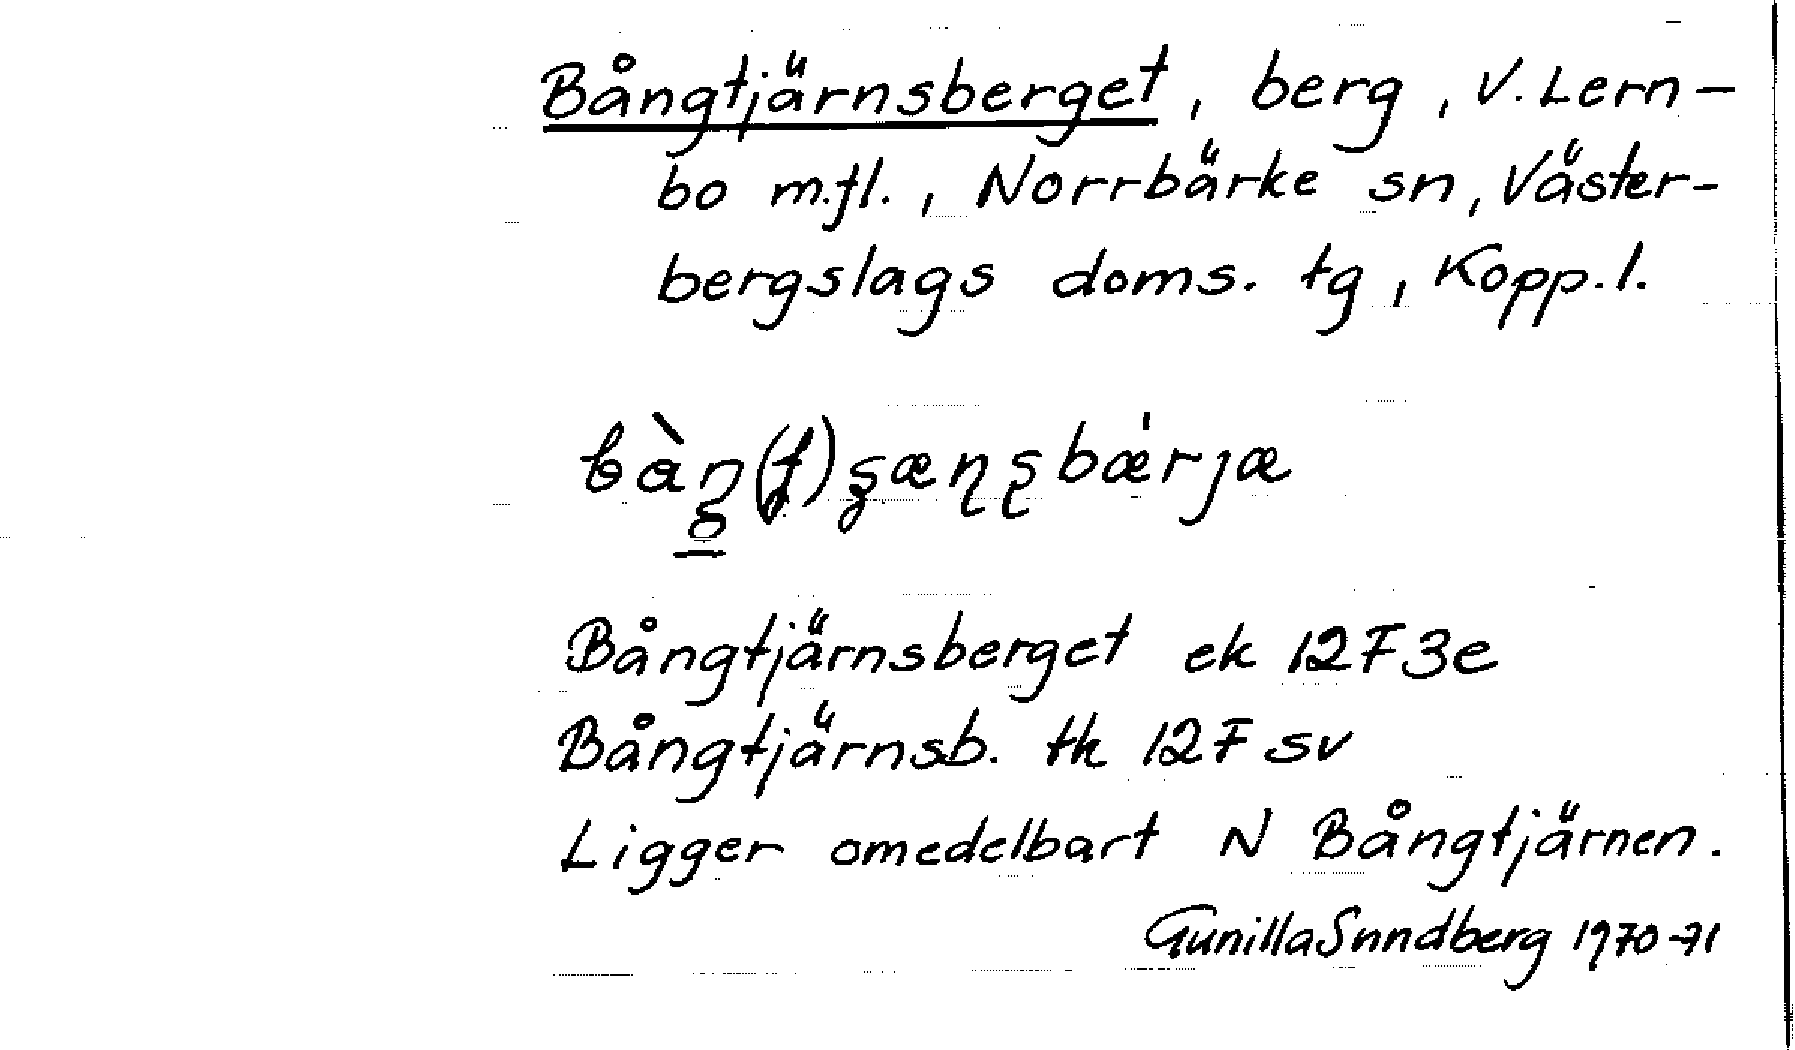 Bångtjärnsberget, berg, V. Lern-
bo m.fl., Norrbärke sn, Väster-
bergslags doms. tg, Kopp. l.
Bångtjärnsberget ek 12F3e
Bångtjärnsb. tk 12F sv
Ligger omedelbart N Bångtjärnen.
Gunilla Sundberg 1970-71